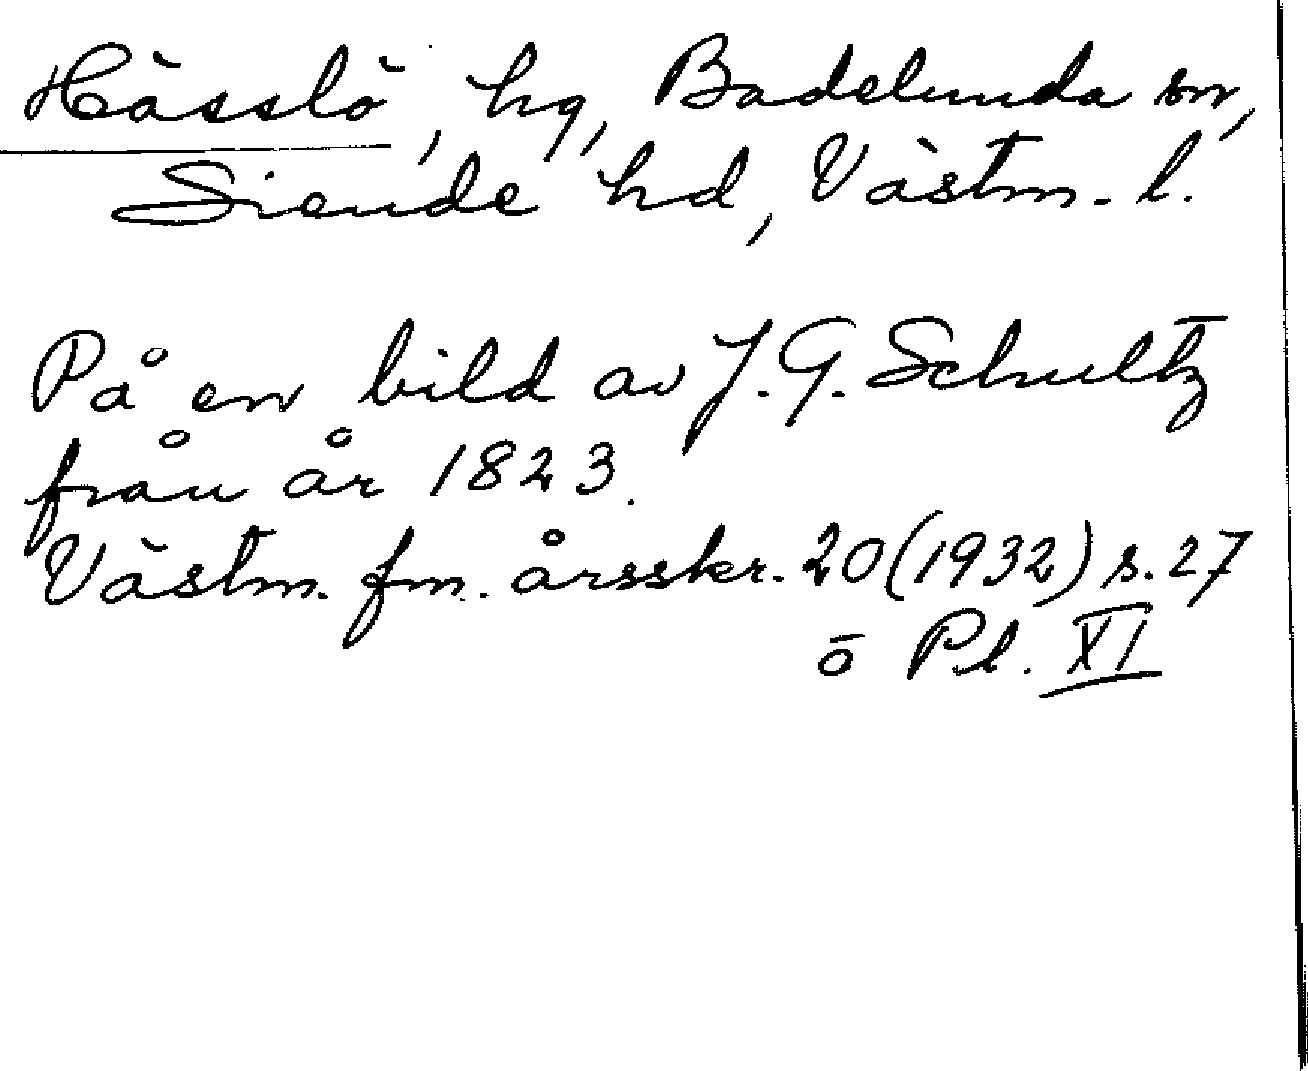 Hässlö, hg, Badelunda sn,
Siende hd, Västm. l.
På en bild av J. G. Schultz
från år 1823.
Västm. fm. årsskr. 20 (1932) s. 27
o Pl. XI